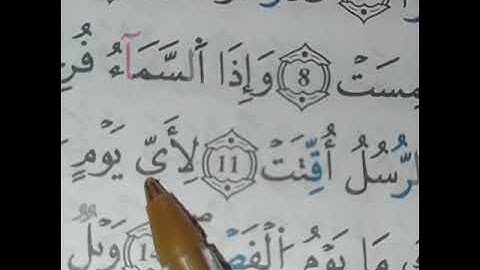 مِسَتْ 8 وَإِذَا اَ۬لسَّمَآءُ فُرِ
لرُّسُلُ أُقِّتَتْ 11 لِأَيِّ يَوْمٍ
مَا يَوْمُ اُ۬لْفَصْ 14 وَيْلٌ